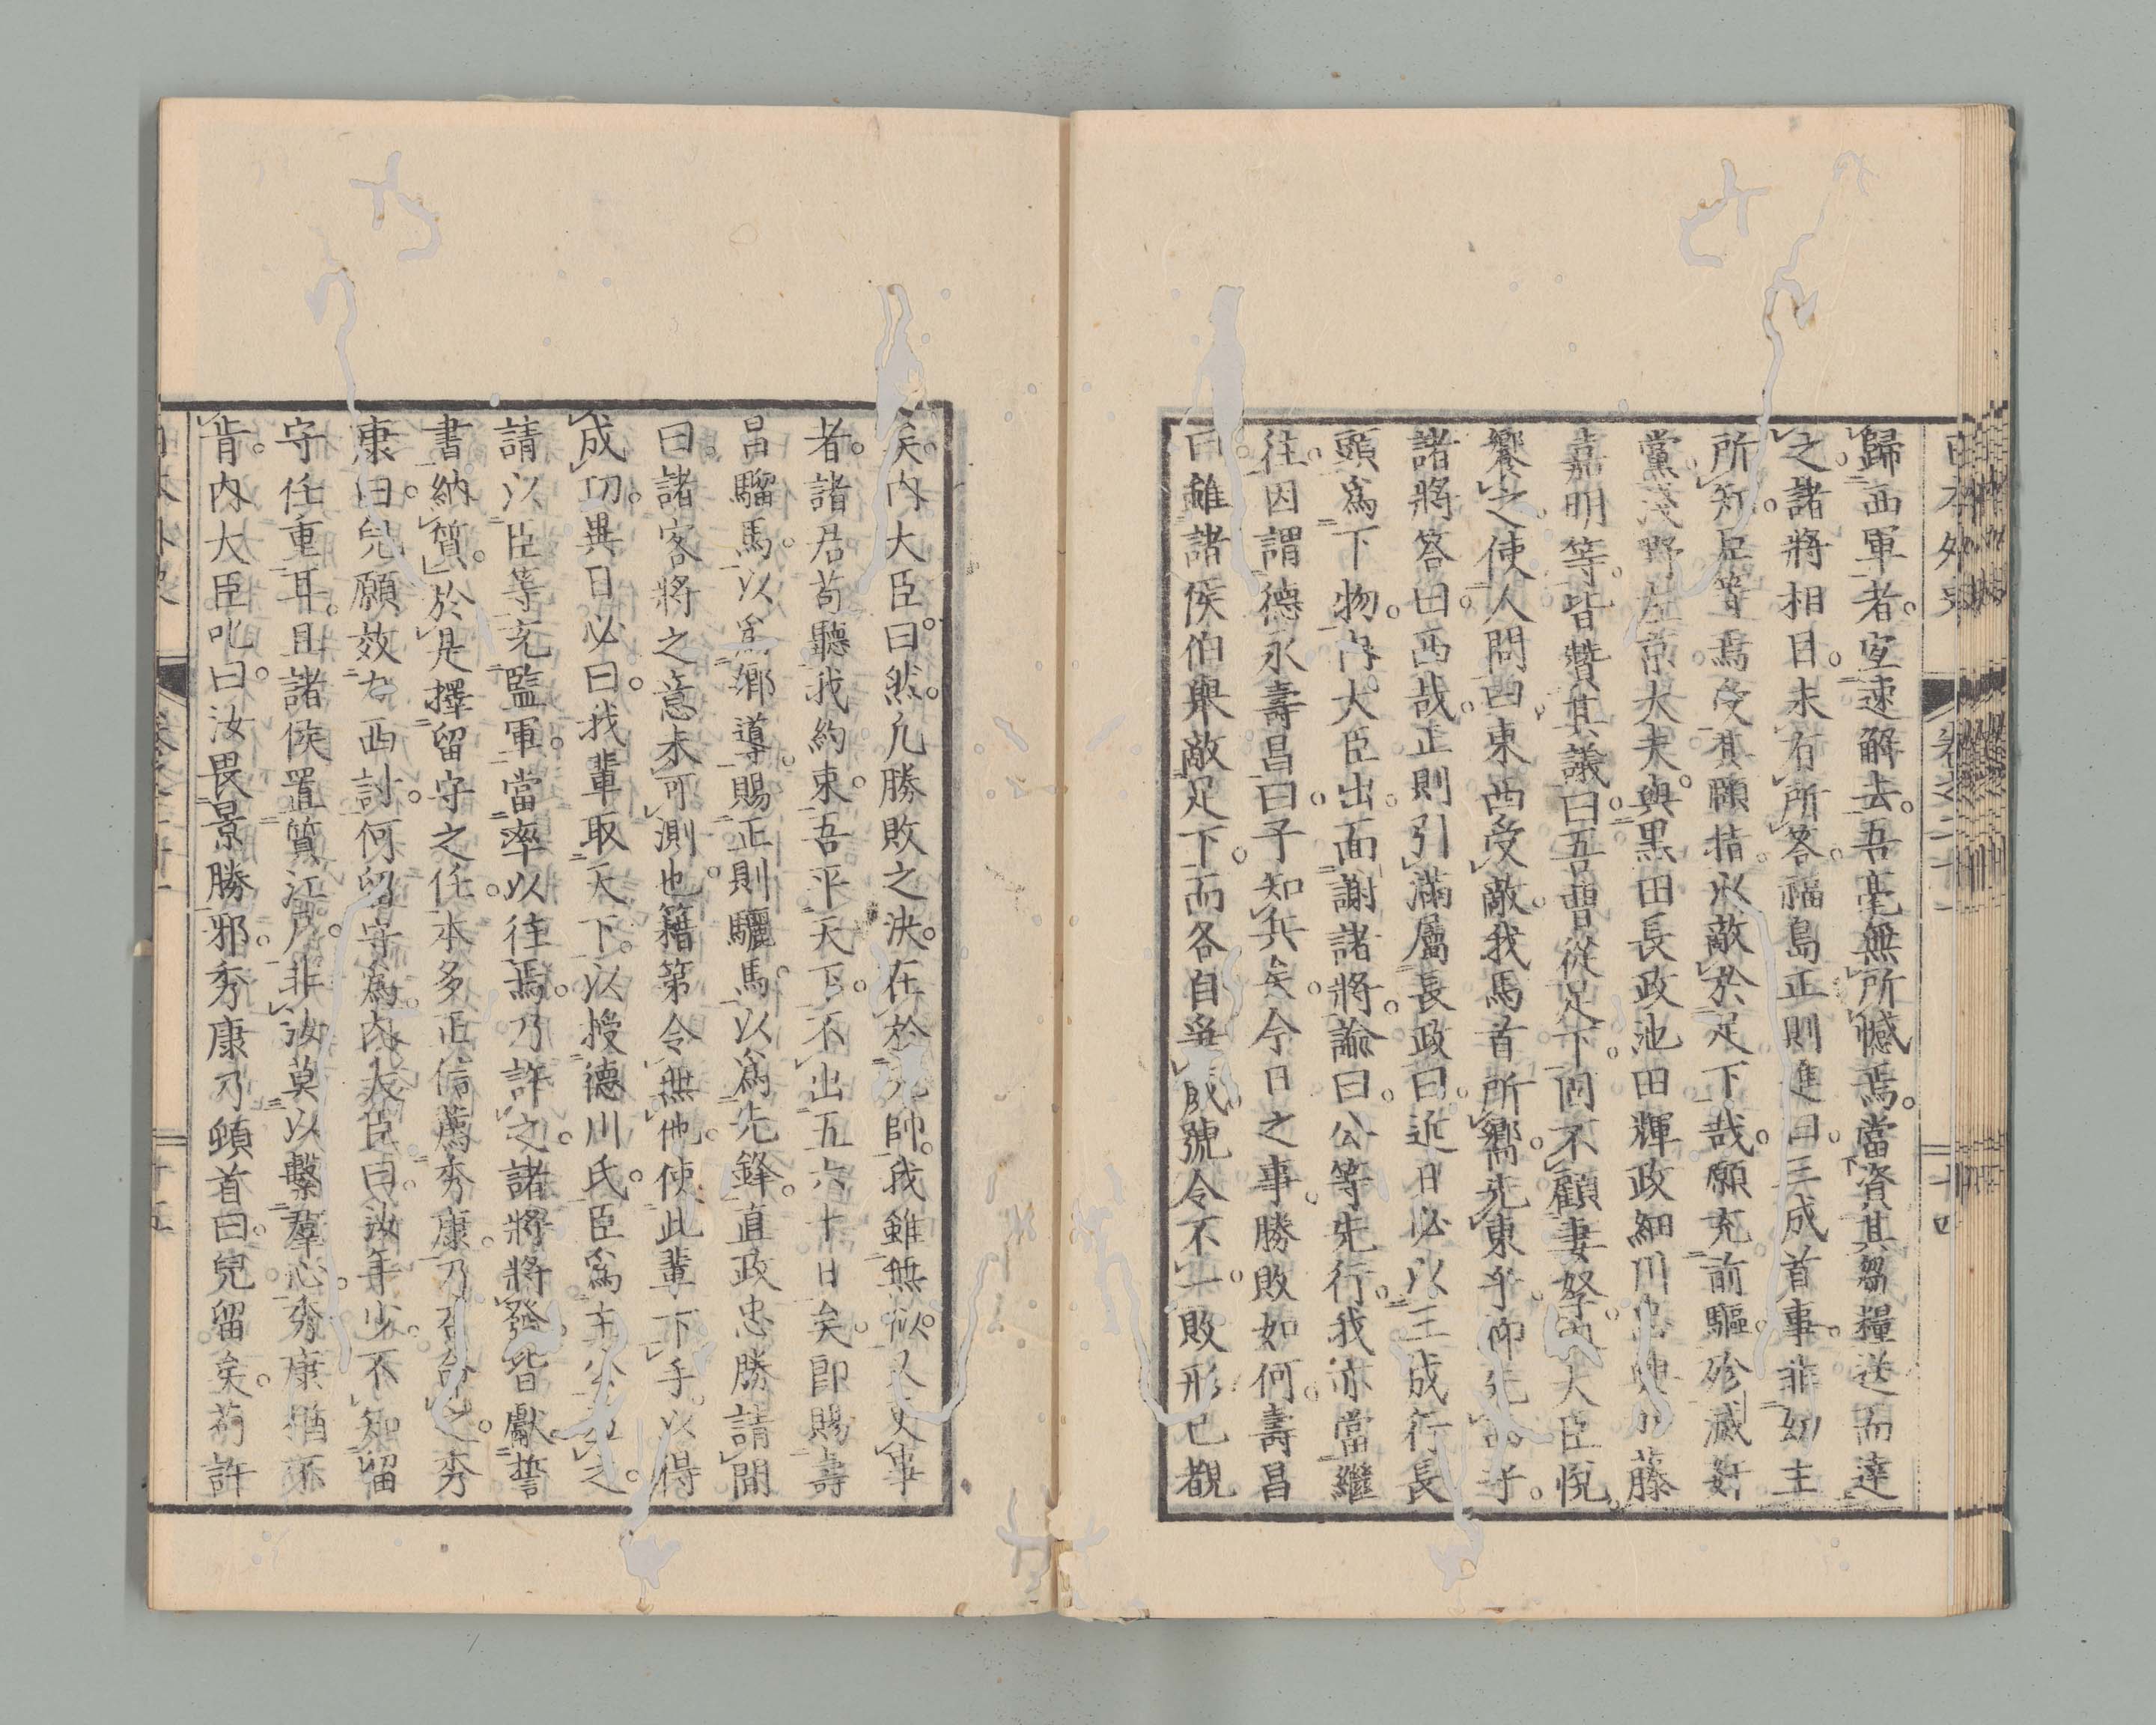 日本外史 卷之二十一 十四
歸西軍者。宜速解去。吾毫無所憾焉。當資其芻糧送而達
之。諸將相目。未有所答。福島正則進曰。三成首事。非幼主
所知。臣等焉受其頤指。以敵於足下哉。願充前驅。殄滅奸
黨。淺野左京大夫。與黑田長政池田輝政細川忠興加藤
嘉明等。皆贊其議曰。吾曹從足下。固不顧妻孥。內大臣悅。
饗之。使人問曰。東西受敵。我馬首所嚮。先東乎。抑先西乎。
諸將答曰。西哉。正則引滿屬長政曰。近日必以三成行長
頭爲下物。內大臣出。面謝諸將。諭曰。公等先行。我亦當繼
往。因謂德永壽昌曰。子知兵矣。今日之事。勝敗如何。壽昌
曰。雖諸侯伯與敵足下。而各自爲威。號令不一。敗形已覩
矣。內大臣曰。然。凡勝敗之決。在於元帥。我雖無似。久更事
者。諸君苟聽我約束。吾平天下。不出五六十日矣。卽賜壽
昌騮馬。以爲鄉導。賜正則驪馬。以爲先鋒。直政忠勝請間
曰。諸客將之意未可測也。藉第令無他。使此輩下手。以得
成功。異日必曰。我輩取天下。以授德川氏。臣爲主公 之。
請以臣等充監軍。當率以往焉。乃許之。諸將將發。皆獻誓
書納質。於是擇留守之任。本多正信薦秀康。乃召命之。秀
康曰。兒願效力西討。何留守爲。內大臣曰。汝年少。不知留
守任重耳。且諸侯置質江戶。非汝莫以繫羣心。秀康猶不
肯。內大臣叱曰。汝畏景勝邪。秀康乃頓首曰。兒留矣。苟許
日本外史 卷之二十一 十五